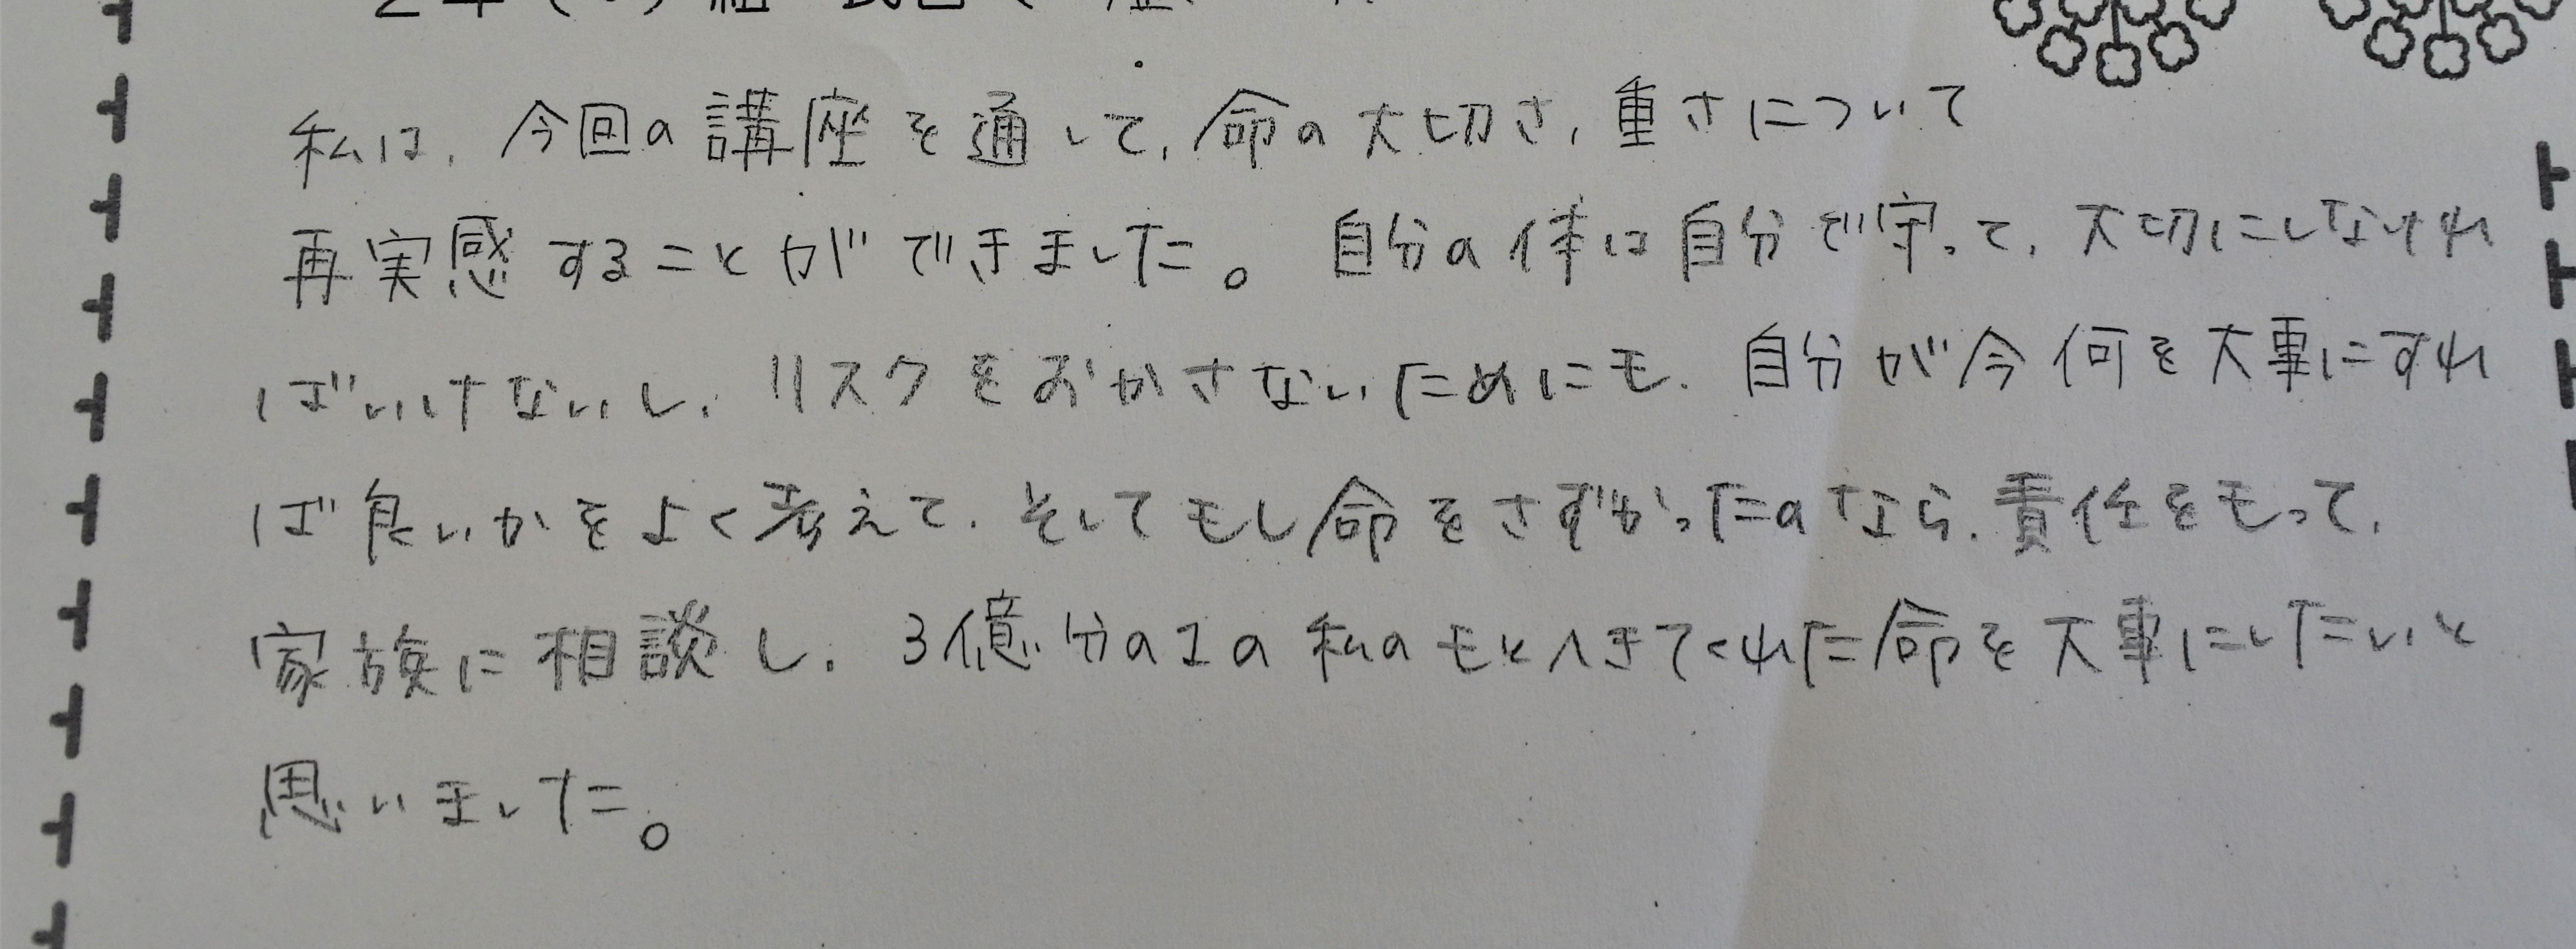 私は、今回の講座を通して、命の大切さ、重さについて
再実感することができました。自分の体は自分で守って、大切にしなけれ
ばいけないし、リスクをおかさないためにも、自分が今何を大事にすれ
ば良いかをよく考えて、そしてもし命をさずかったのなら、責任をもって、
家族に相談し、3億分の1の私のもとへきてくれた命を大事にしたいと
思いました。